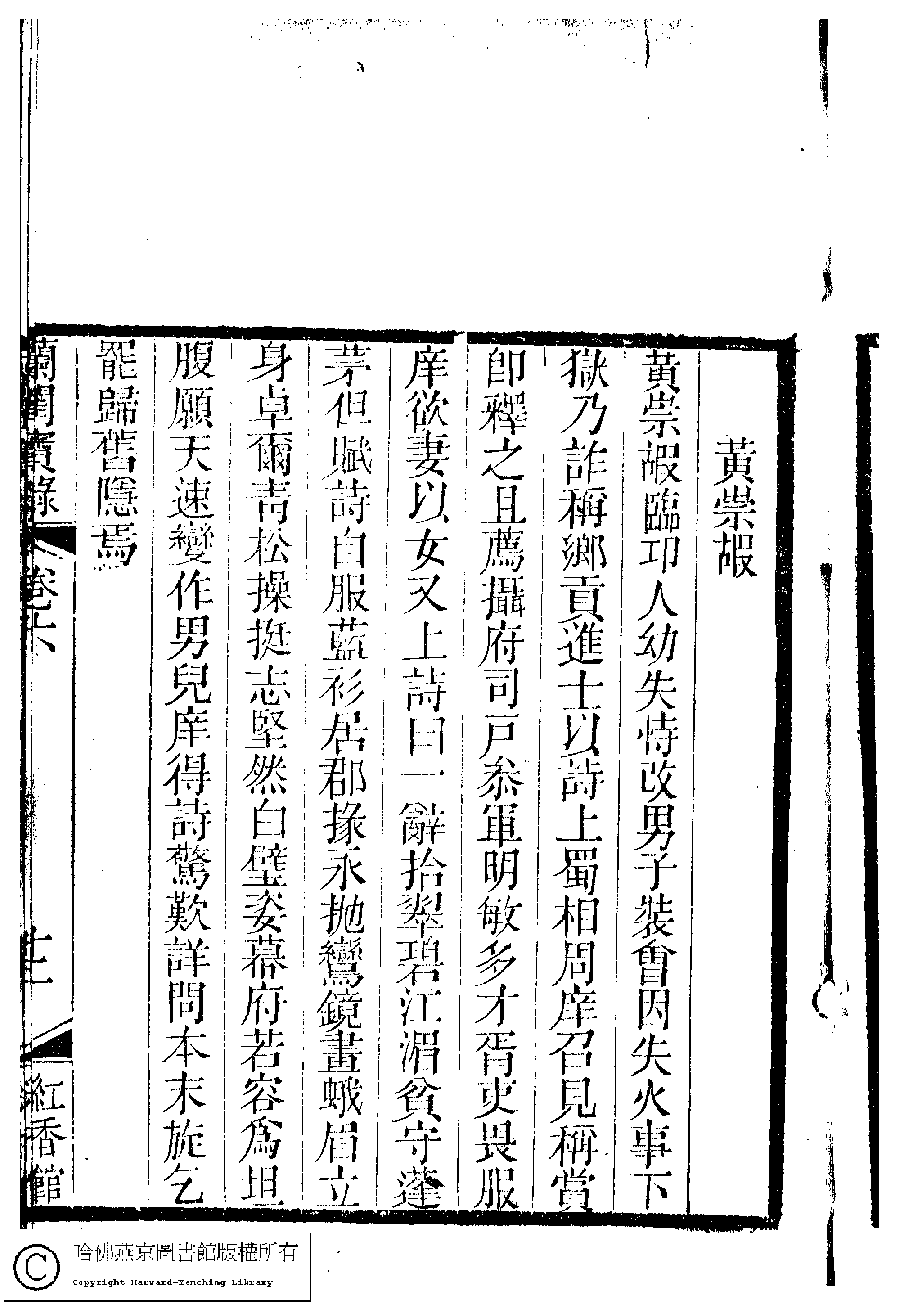 黃崇嘏
黃崇嘏臨邛人幼失恃改男子裝會因失火事下
獄乃詐稱鄉貢進士以詩上蜀相周庠召見稱賞
即釋之且薦攝府司戶叅軍明敏多才胥吏畏服
庠欲妻以女又上詩曰一辭拾翠碧江湄貧守蓬
茅但賦詩自服藍衫居郡掾永抛鸞鏡畫蛾眉立
身卓爾靑松操挺志堅然白璧姿幕府若容爲坦
腹願天速變作男兒庠得詩驚歎詳問本末旋乞
罷歸舊隱焉
蘭閨寶錄
卷六
十二
紅香館
哈佛燕京圖書館版權所有
Copyright Harvard-Yenching Library